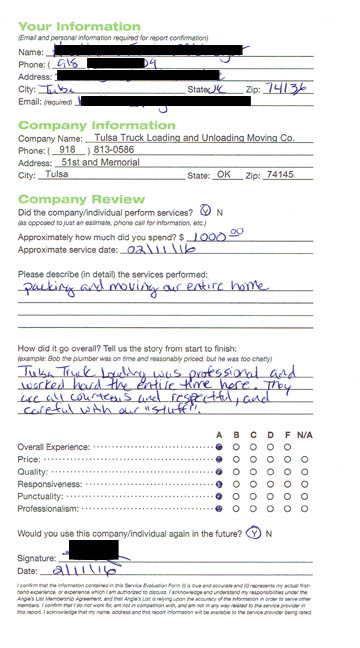 Your Information
(Email and personal information required for report confirmation)
Name:
Phone: ( 918
Address:
City: Tulsa State: OK Zip: 74136
Email: (required)
Company Information
Company Name: Tulsa Truck Loading and Unloading Moving Co.
Phone: ( 918 ) 813-0586
Address: 51st and Memorial
City: Tulsa State: OK Zip: 74145
Company Review
Did the company/individual perform services? Y N
(as opposed to just an estimate, phone call for information, etc.)
Approximately how much did you spend? $ 1000 00
Approximate service date: 02/11/16
Please describe (in detail) the services performed:
packing and moving our entire home
How did it go overall? Tell us the story from start to finish:
(example: Bob the plumber was on time and reasonably priced, but he was too chatty)
Tulsa Truck Loading was professional and
worked hard the entire time here. They
are all courteous and respectful, and
careful with our "stuff".
A B C D F N/A
Overall Experience:
Price:
Quality:
Responsiveness:
Punctuality:
Professionalism:
Would you use this company/individual again in the future? Y N
Signature:
Date: 2/11/16
I confirm that the information contained in this Service Evaluation Form (i) is true and accurate and (ii) represents my actual first-
hand experience, or experience which I am authorized to discuss. I acknowledge and understand my responsibilities under the
Angie's List Membership Agreement, and that Angie's List is relying upon the accuracy of the information in order to serve other
members. I confirm that I do not work for, am not in competition with, and am not in any way related to the service provider in
this report. I acknowledge that my name address and this report information will be available to the service provider being rated.